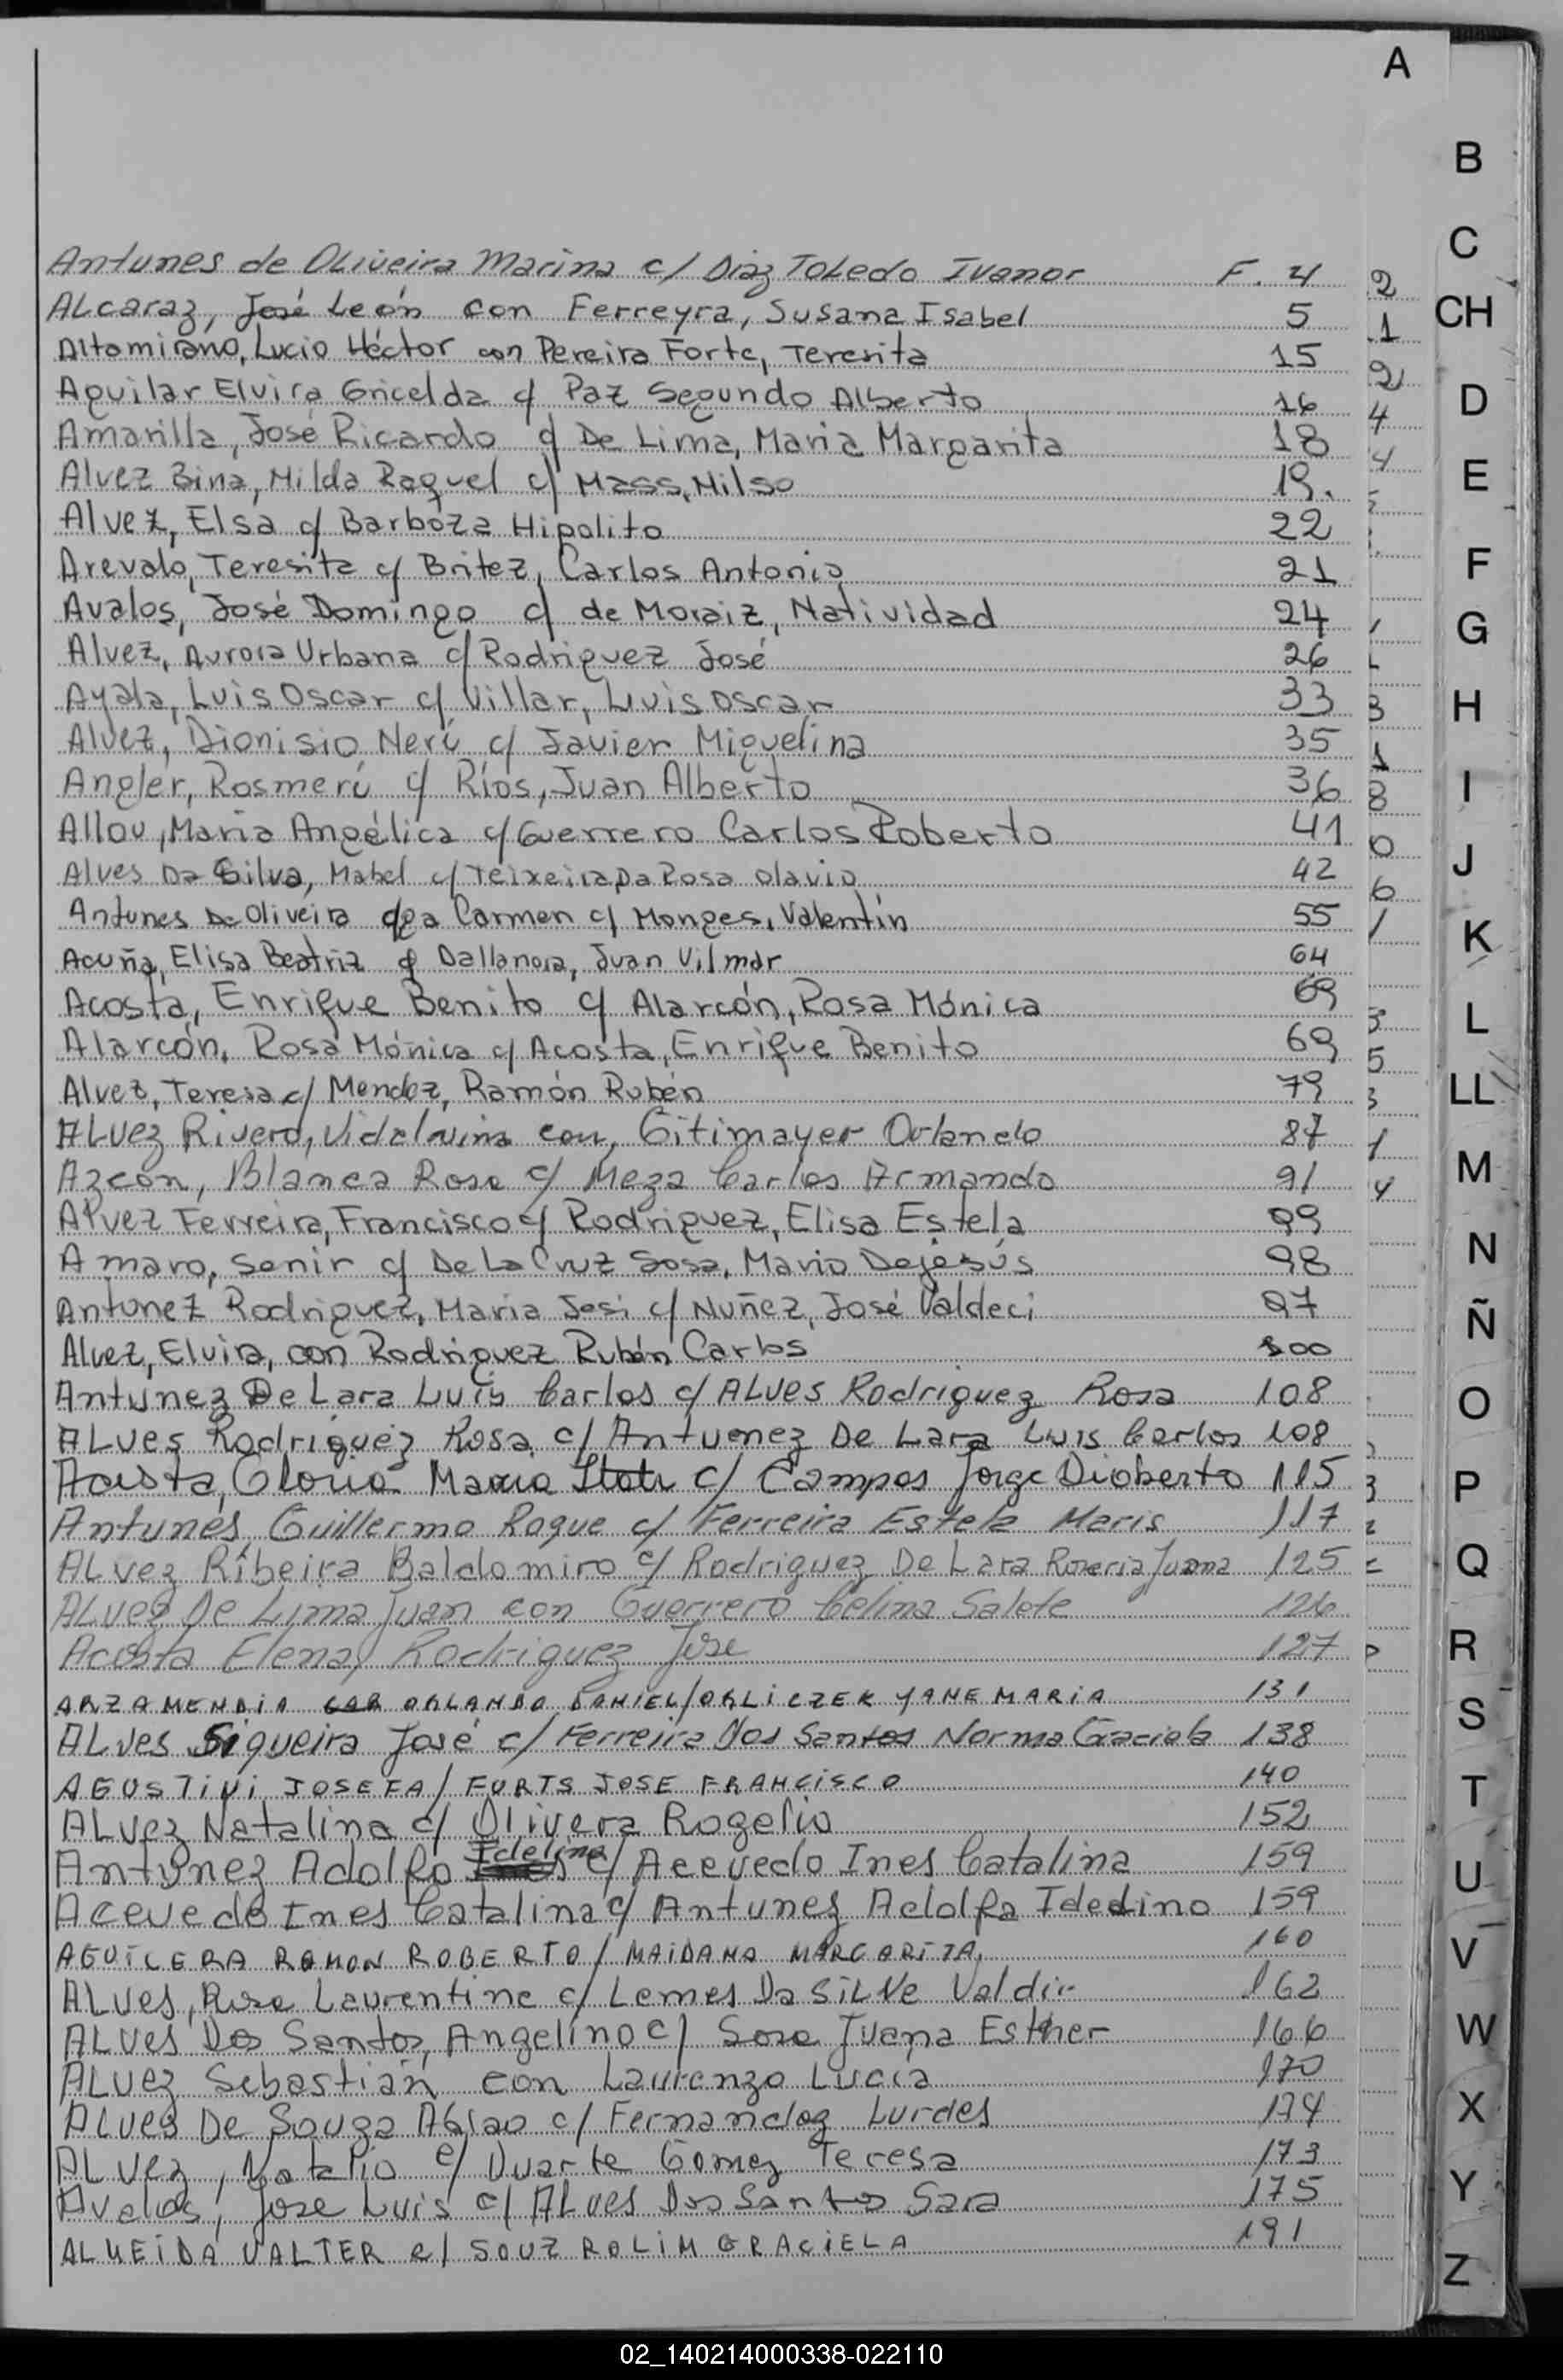 A
Antunes de Oliveira Marina c/ Diaz Toledo Ivanor F. 4
Alcaraz, José León con Ferreyra, Susana Isabel 5
Altamirano, Lucio Héctor con Pereira Forte, Teresita 15
Aguilar Elvira Gricelda c/ Paz Segundo Alberto 16
Amarilla, José Ricardo c/ De Lima, Maria Margarita 18
Alvez Bina, Milda Raquel c/ Mass, Nilso 19.
Alvez, Elsa c/ Barboza Hipolito 22
Arevalo, Teresita c/ Britez, Carlos Antonio 21
Avalos, José Domingo c/ de Moraiz, Natividad 24
Alvez, Aurora Urbana c/ Rodriguez José 26
Ayala, Luis Oscar c/ Villar, Luis Oscar 33
Alvez, Dionisio Nerí c/ Javier Miguelina 35
Angler, Rosmerí c/ Ríos, Juan Alberto 36
Allou, Maria Angélica c/ Guerrero Carlos Roberto 41
Alves Da Silva, Mabel c/ Teixeira Da Rosa Olavio 42
Antunes De Oliveira Carmen c/ Monges, Valentín 55
Acuña, Elisa Beatriz c/ Dallanora, Juan Vilmar 64
Acosta, Enrique Benito c/ Alarcón, Rosa Mónica 69
Alarcón, Rosa Mónica c/ Acosta, Enrique Benito 69
Alvez, Teresa c/ Mendez, Ramón Rubén 79
Alvez Rivero, Vidalvina con, Gitimayer Orlando 87
Azcon, Blanca Rosa c/ Meza Carlos Armando 91
Alvez Ferreira, Francisco c/ Rodriguez, Elisa Estela 99
Amaro, Senir c/ De La Cruz Sosa, Mario Dejesús 98
Antunez Rodriguez, Maria Jesi c/ Nuñez, José Valdeci 97
Alvez, Elvira, con Rodriguez Rubén Carlos 100
Antunez De Lara Luis Carlos c/ Alves Rodriguez Rosa 108
Alves Rodriguez Rosa c/ Antunez De Lara Luis Carlos 108
Acosta, Gloria Maria c/ Campos Jorge Dioberto 115
Antunes, Guillermo Roque c/ Ferreira Estela Maris 117
Alvez Ribeira Baldomiro c/ Rodriguez De Lara Roseria Juana 125
Alvez De Lima Juan con Guerrero Celina Salete 126
Acosta Elena / Rodriguez Jose 127
ARZAMENDIA ORLANDO DANIEL/ORLICZEK YANE MARIA 131
Alves Siqueira José c/ Ferreira Dos Santos Norma Graciela 138
AGUSTINI JOSEFA / FURTS JOSE FRANCISCO 140
Alvez Natalina c/ Olivera Rogelio 152
Antunez Adolfo Idelino c/ Acevedo Ines Catalina 159
Acevedo Ines Catalina c/ Antunez Adolfo Idedino 159
AGUILERA RAMON ROBERTO / MAIDANA MARGARITA. 160
Alves, Rosa Laurentine c/ Lemes Da Silve Valdir 162
Alves Dos Santos, Angelino c/ Sosa Juana Esther 166
Alvez Sebastián con Laurenzo Lucía 170
Alves De Souza Abrao c/ Fernandez Lurdes 174
Alvez, Natalio c/ Duarte Gomez Teresa 173
Avalos, Jose Luis c/ Alves Dos Santos Sara 175
ALMEIDA VALTER c/ SOUZ ROLIM GRACIELA 191
B
C
CH
D
E
F
G
H
I
J
K
L
LL
M
N
Ñ
O
P
Q
R
S
T
U
V
W
X
Y
Z
02_140214000338-022110